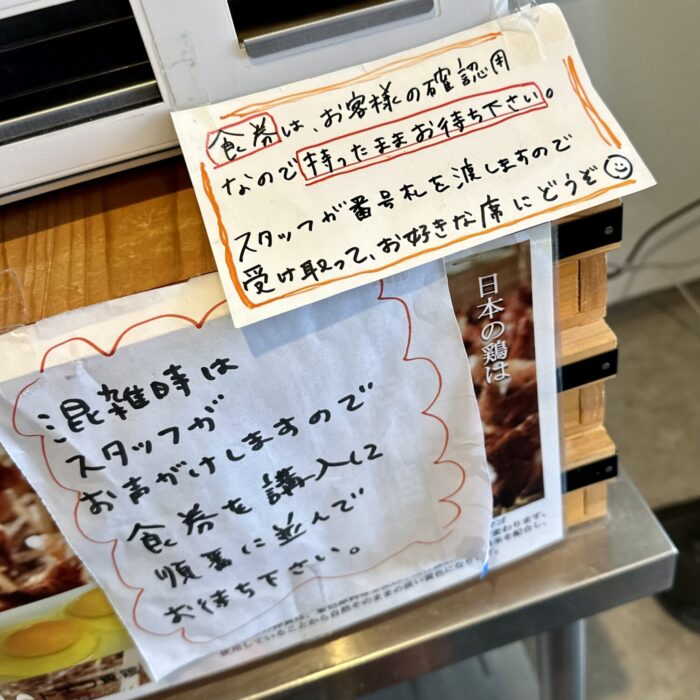 食券は、お客様の確認用
なので持ったままお待ち下さい。
スタッフが番号札を渡しますので
受け取って、お好きな席にどうぞ
混雑時は
スタッフが
お声がけしますので
食券を講入に
順番に並んで
お待ち下さい。
日本の鶏は